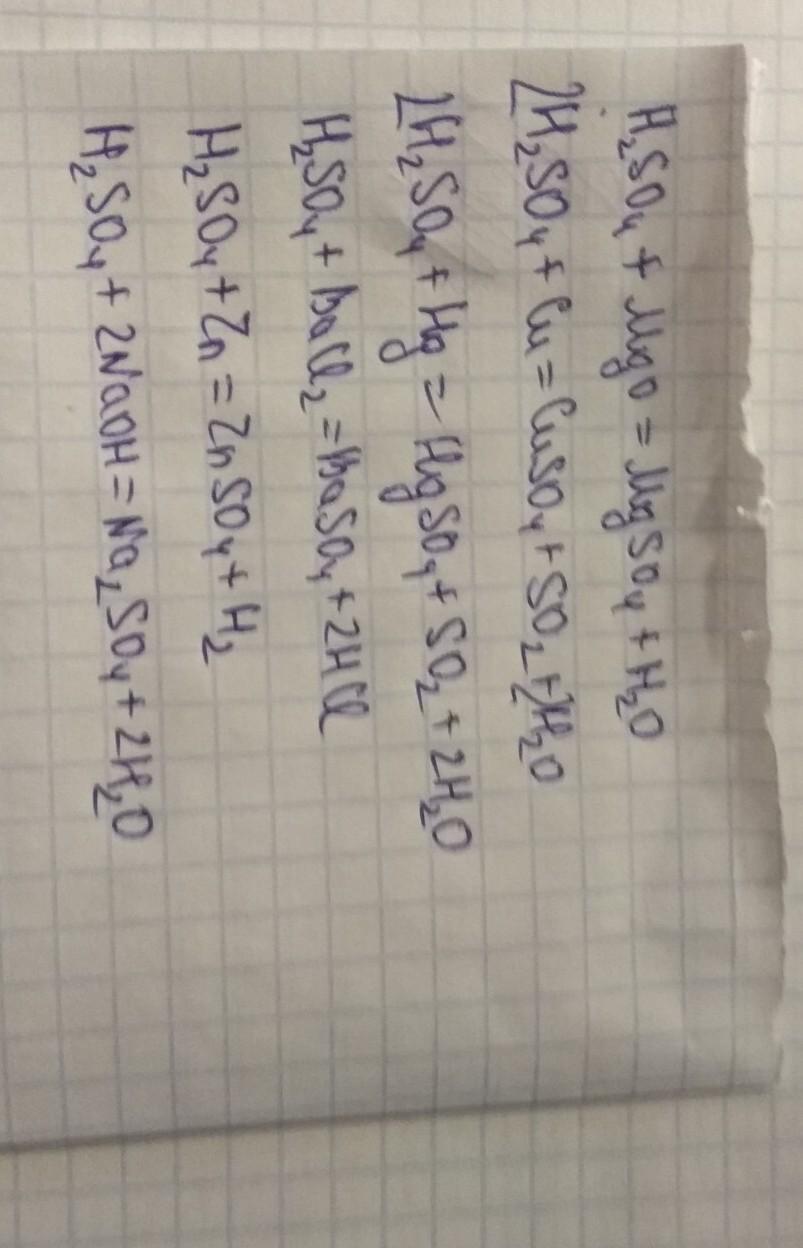 H₂SO₄ + MgO = MgSO₄ + H₂O
2H₂SO₄ + Cu = CuSO₄ + SO₂ + 2H₂O
2H₂SO₄ + Hg = HgSO₄ + SO₂ + 2H₂O
H₂SO₄ + BaCl₂ = BaSO₄ + 2HCl
H₂SO₄ + Zn = ZnSO₄ + H₂
H₂SO₄ + 2NaOH = Na₂SO₄ + 2H₂O